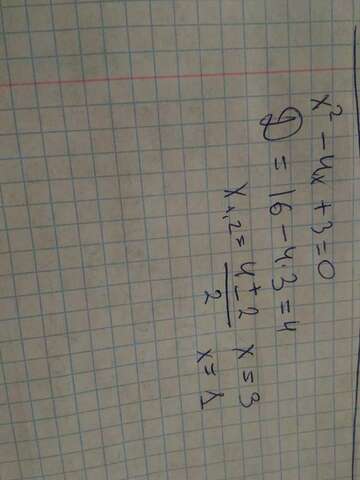 x² - 4x + 3 = 0
D = 16 - 4·3 = 4
x₁,₂ = (4 ± 2)/2 x = 3
x = 1